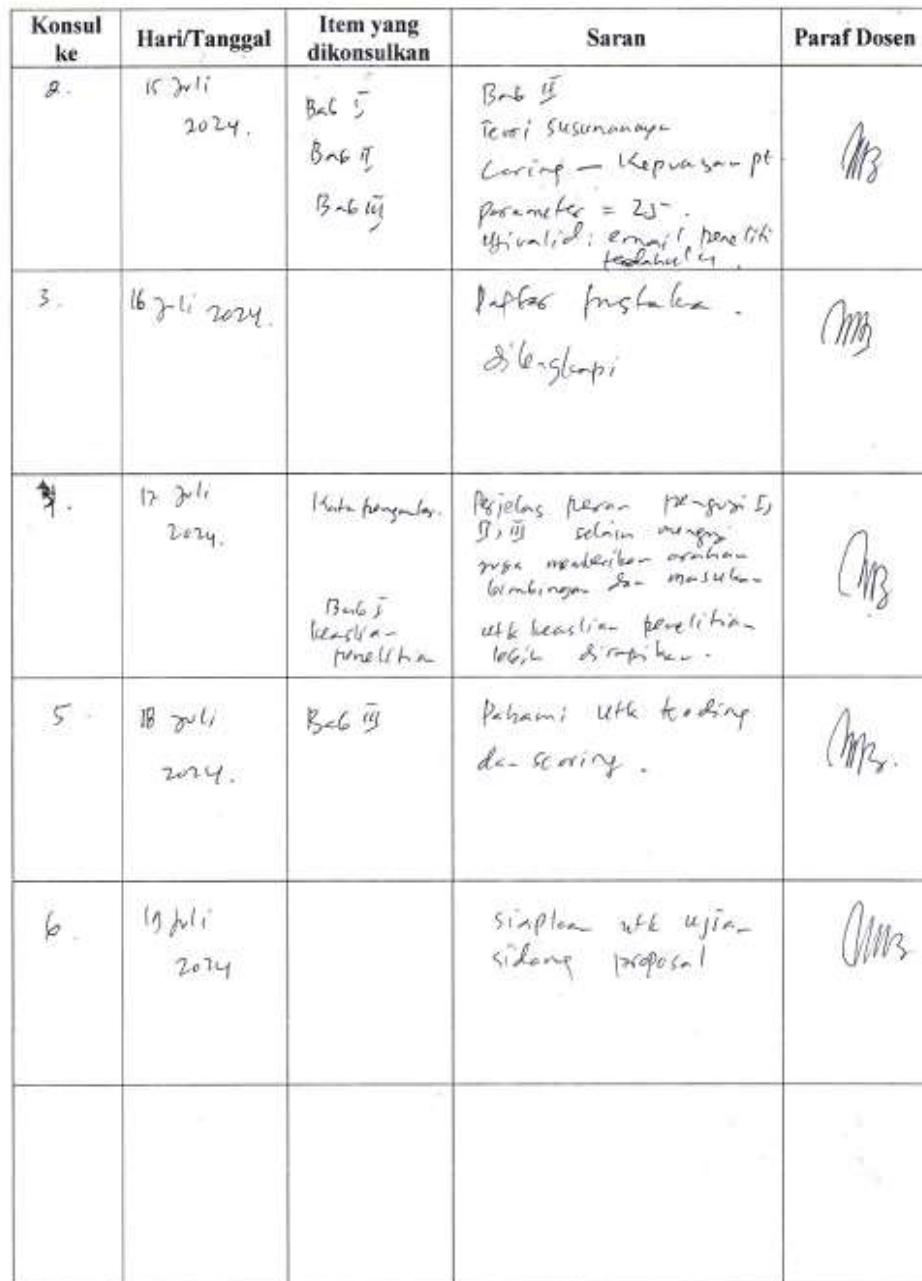 Konsul ke
Hari/Tanggal
Item yang dikonsulkan
Saran
Paraf Dosen
2.
15 Juli
2024.
Bab I
Bab II
Bab III
Bab II
Teori susunannya
Caring – Kepuasan pt
parameter = 25.
uji valid: email peneliti
terdahulu.
3.
16 Juli 2024.
Daftar pustaka.
dilengkapi
17 Juli
2024.
Kata pengantar.
Bab I
keaslian
penelitian
Perjelas peran penguji I,
II, III selain menguji
juga memberikan arahan
bimbingan dan masukan
utk keaslian penelitian
lebih dirapikan.
5.
18 Juli
2024.
Bab III
Pahami utk koding
dan scoring.
6.
19 Juli
2024
siapkan utk ujian
sidang proposal